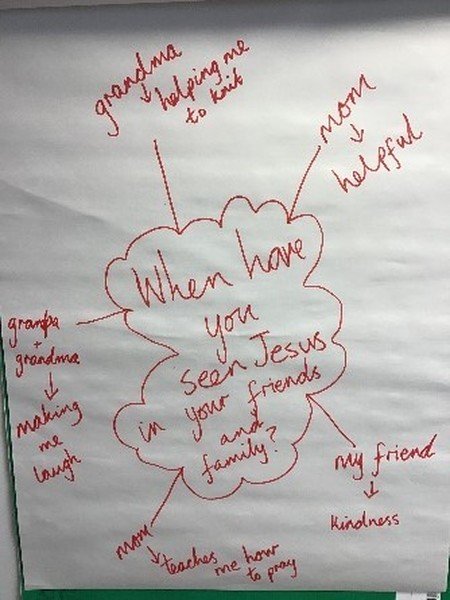 grandma
↓ helping me
to knit
mom
↓
helpful
When have
you
seen Jesus
in your friends
and
family?
granpa
+
grandma
↓
making
me
laugh
my friend
↓
kindness
mom
↓ teaches me how
to pray